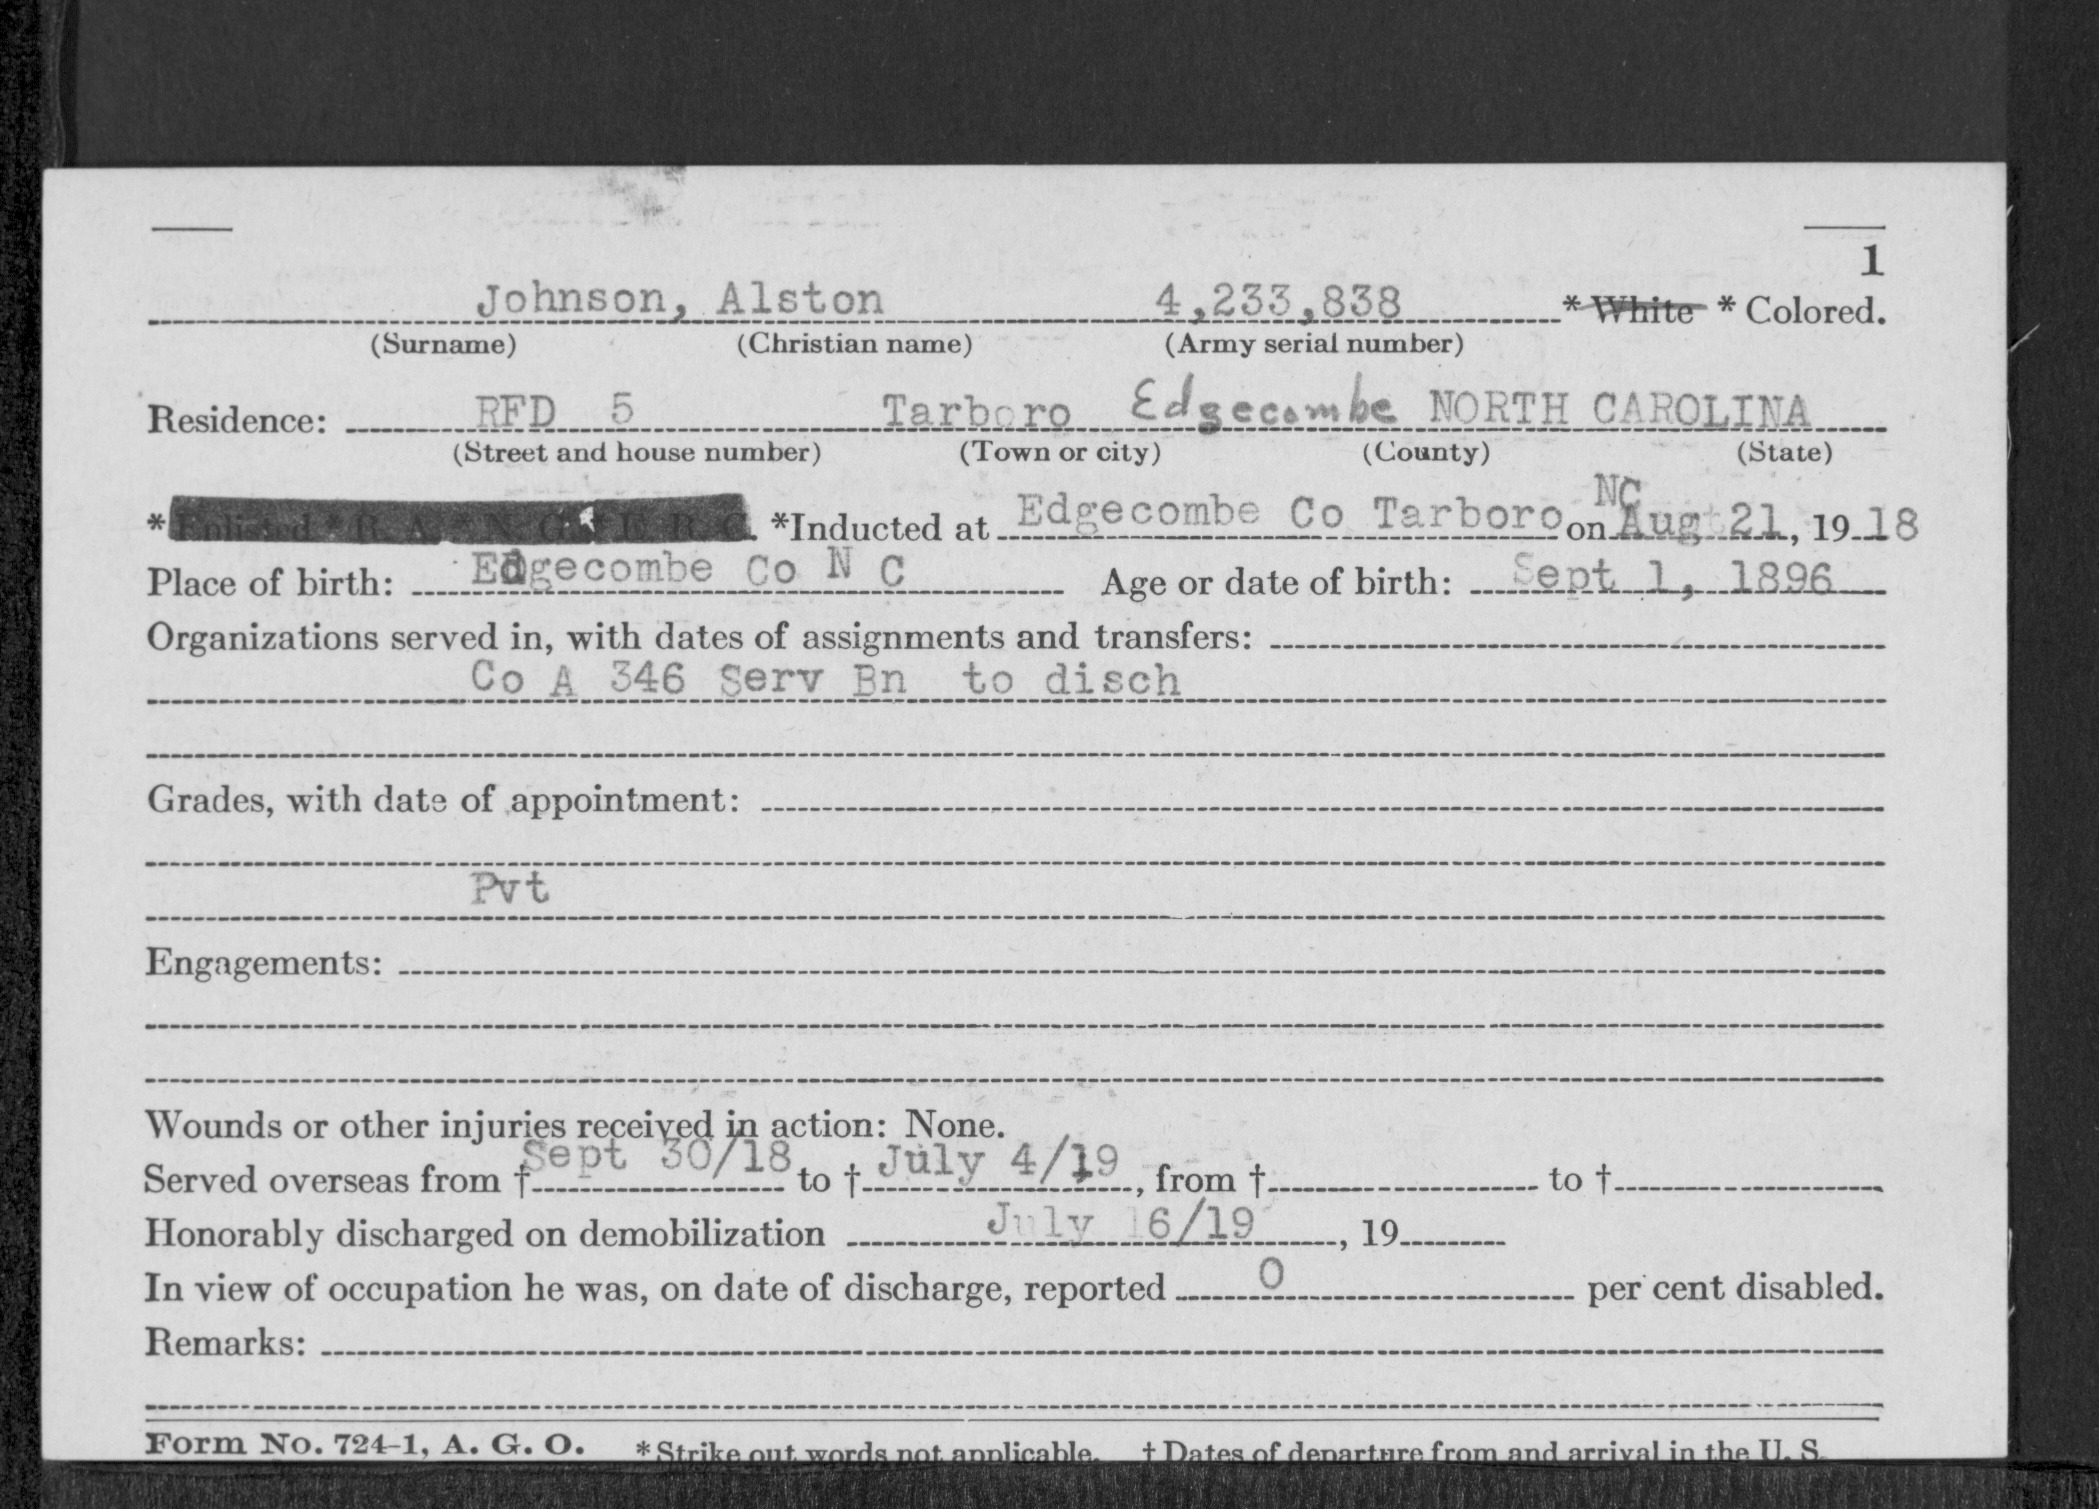 1
Johnson, Alston 4,233,838 * White * Colored.
(Surname) (Christian name) (Army serial number)
Residence: RFD 5 Tarboro Edgecombe NORTH CAROLINA
(Street and house number) (Town or city) (County) (State)
NC
* Enlisted * R. A. * N. G. * E. R. C. *Inducted at Edgecombe Co Tarboro on Aug 21, 19 18
Place of birth: Edgecombe Co N C Age or date of birth: Sept 1, 1896
Organizations served in, with dates of assignments and transfers:
Co A 346 Serv Bn to disch
Grades, with date of appointment:
Pvt
Engagements:
Wounds or other injuries received in action: None.
Served overseas from † Sept 30/18 to † July 4/19, from † to †
Honorably discharged on demobilization July 16/19, 19
In view of occupation he was, on date of discharge, reported 0 per cent disabled.
Remarks:
Form No. 724-1, A. G. O. *Strike out words not applicable. † Dates of departure from and arrival in the U. S.